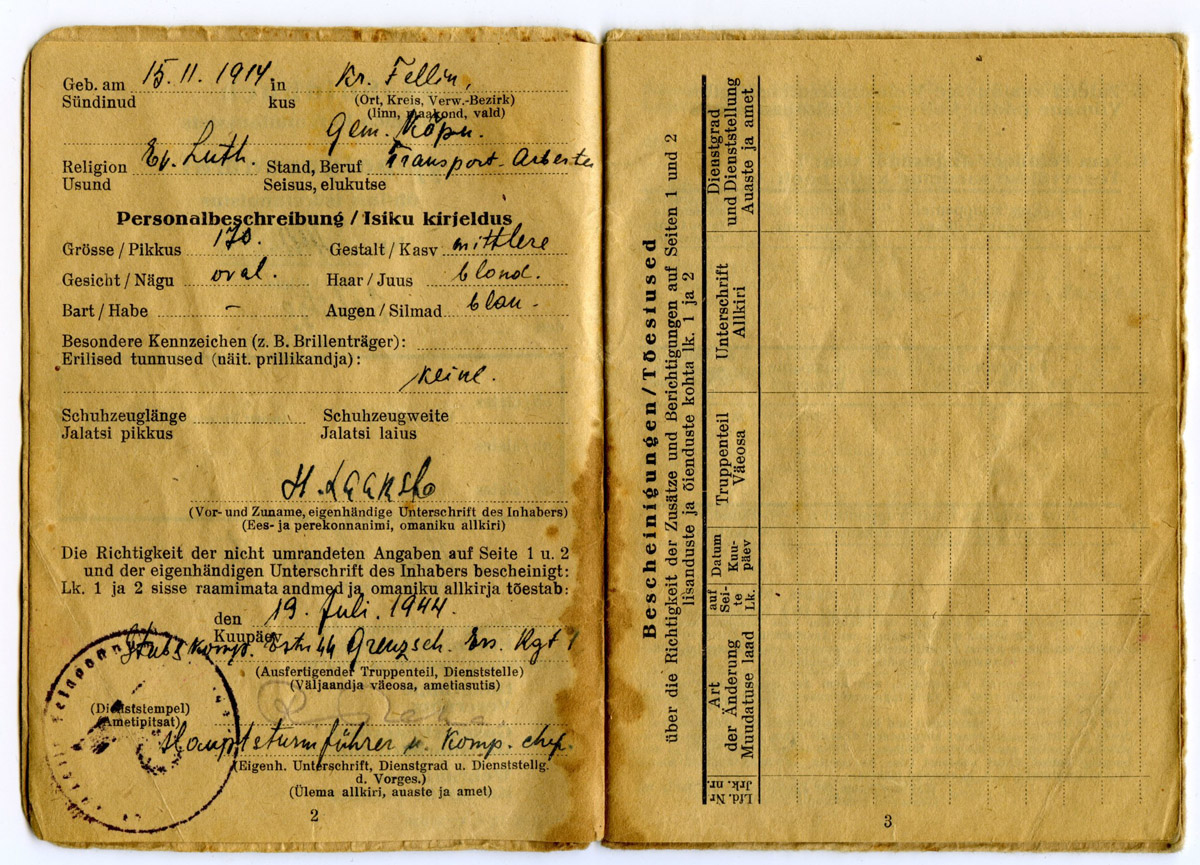 Geb. am 15. 11. 1914 in Kr. Fellin,
Sündinud kus (Ort, Kreis, Verw.-Bezirk)
(linn, maakond, vald)
Gem. Kõpu.
Religion Ev. Luth. Stand, Beruf Transport-Arbeiter
Usund Seisus, elukutse
Personalbeschreibung / Isiku kirjeldus
Grösse / Pikkus 170. Gestalt / Kasv mittlere
Gesicht / Nägu oval. Haar / Juus blond.
Bart / Habe – Augen / Silmad blau.
Besondere Kennzeichen (z. B. Brillenträger):
Erilised tunnused (näit. prillikandja):
keine.
Schuhzeuglänge Schuhzeugweite
Jalatsi pikkus Jalatsi laius
H. Laaksto
(Vor- und Zuname, eigenhändige Unterschrift des Inhabers)
(Ees- ja perekonnanimi, omaniku allkiri)
Die Richtigkeit der nicht umrandeten Angaben auf Seite 1 u. 2
und der eigenhändigen Unterschrift des Inhabers bescheinigt:
Lk. 1 ja 2 sisse raamimata andmed ja omaniku allkirja tõestab:
den 19. Juli. 1944.
Kuupäev
Stabskomp. Estn. SS Grenzsch. Ers. Rgt 1
(Ausfertigender Truppenteil, Dienststelle)
(Väljaandja väeosa, ametiasutis)
(Dienststempel)
(Ametipitsat)
Hauptsturmführer u. Komp. chef.
(Eigenh. Unterschrift, Dienstgrad u. Dienststellg.
d. Vorges.)
(Ülema allkiri, auaste ja amet)
2
Bescheinigungen / Tõesiused
über die Richtigkeit der Zusätze und Berichtigungen auf Seiten 1 und 2
lisanduste ja õienduste kohta lk. 1 ja 2
Lfd. Nr
Jrk. nr.
Art
der Änderung
Muudatuse laad
auf
Sei-
te
Lk.
Datum
Kuu-
päev
Truppenteil
Väeosa
Unterschrift
Allkiri
Dienstgrad
und Dienststellung
Auaste ja amet
3